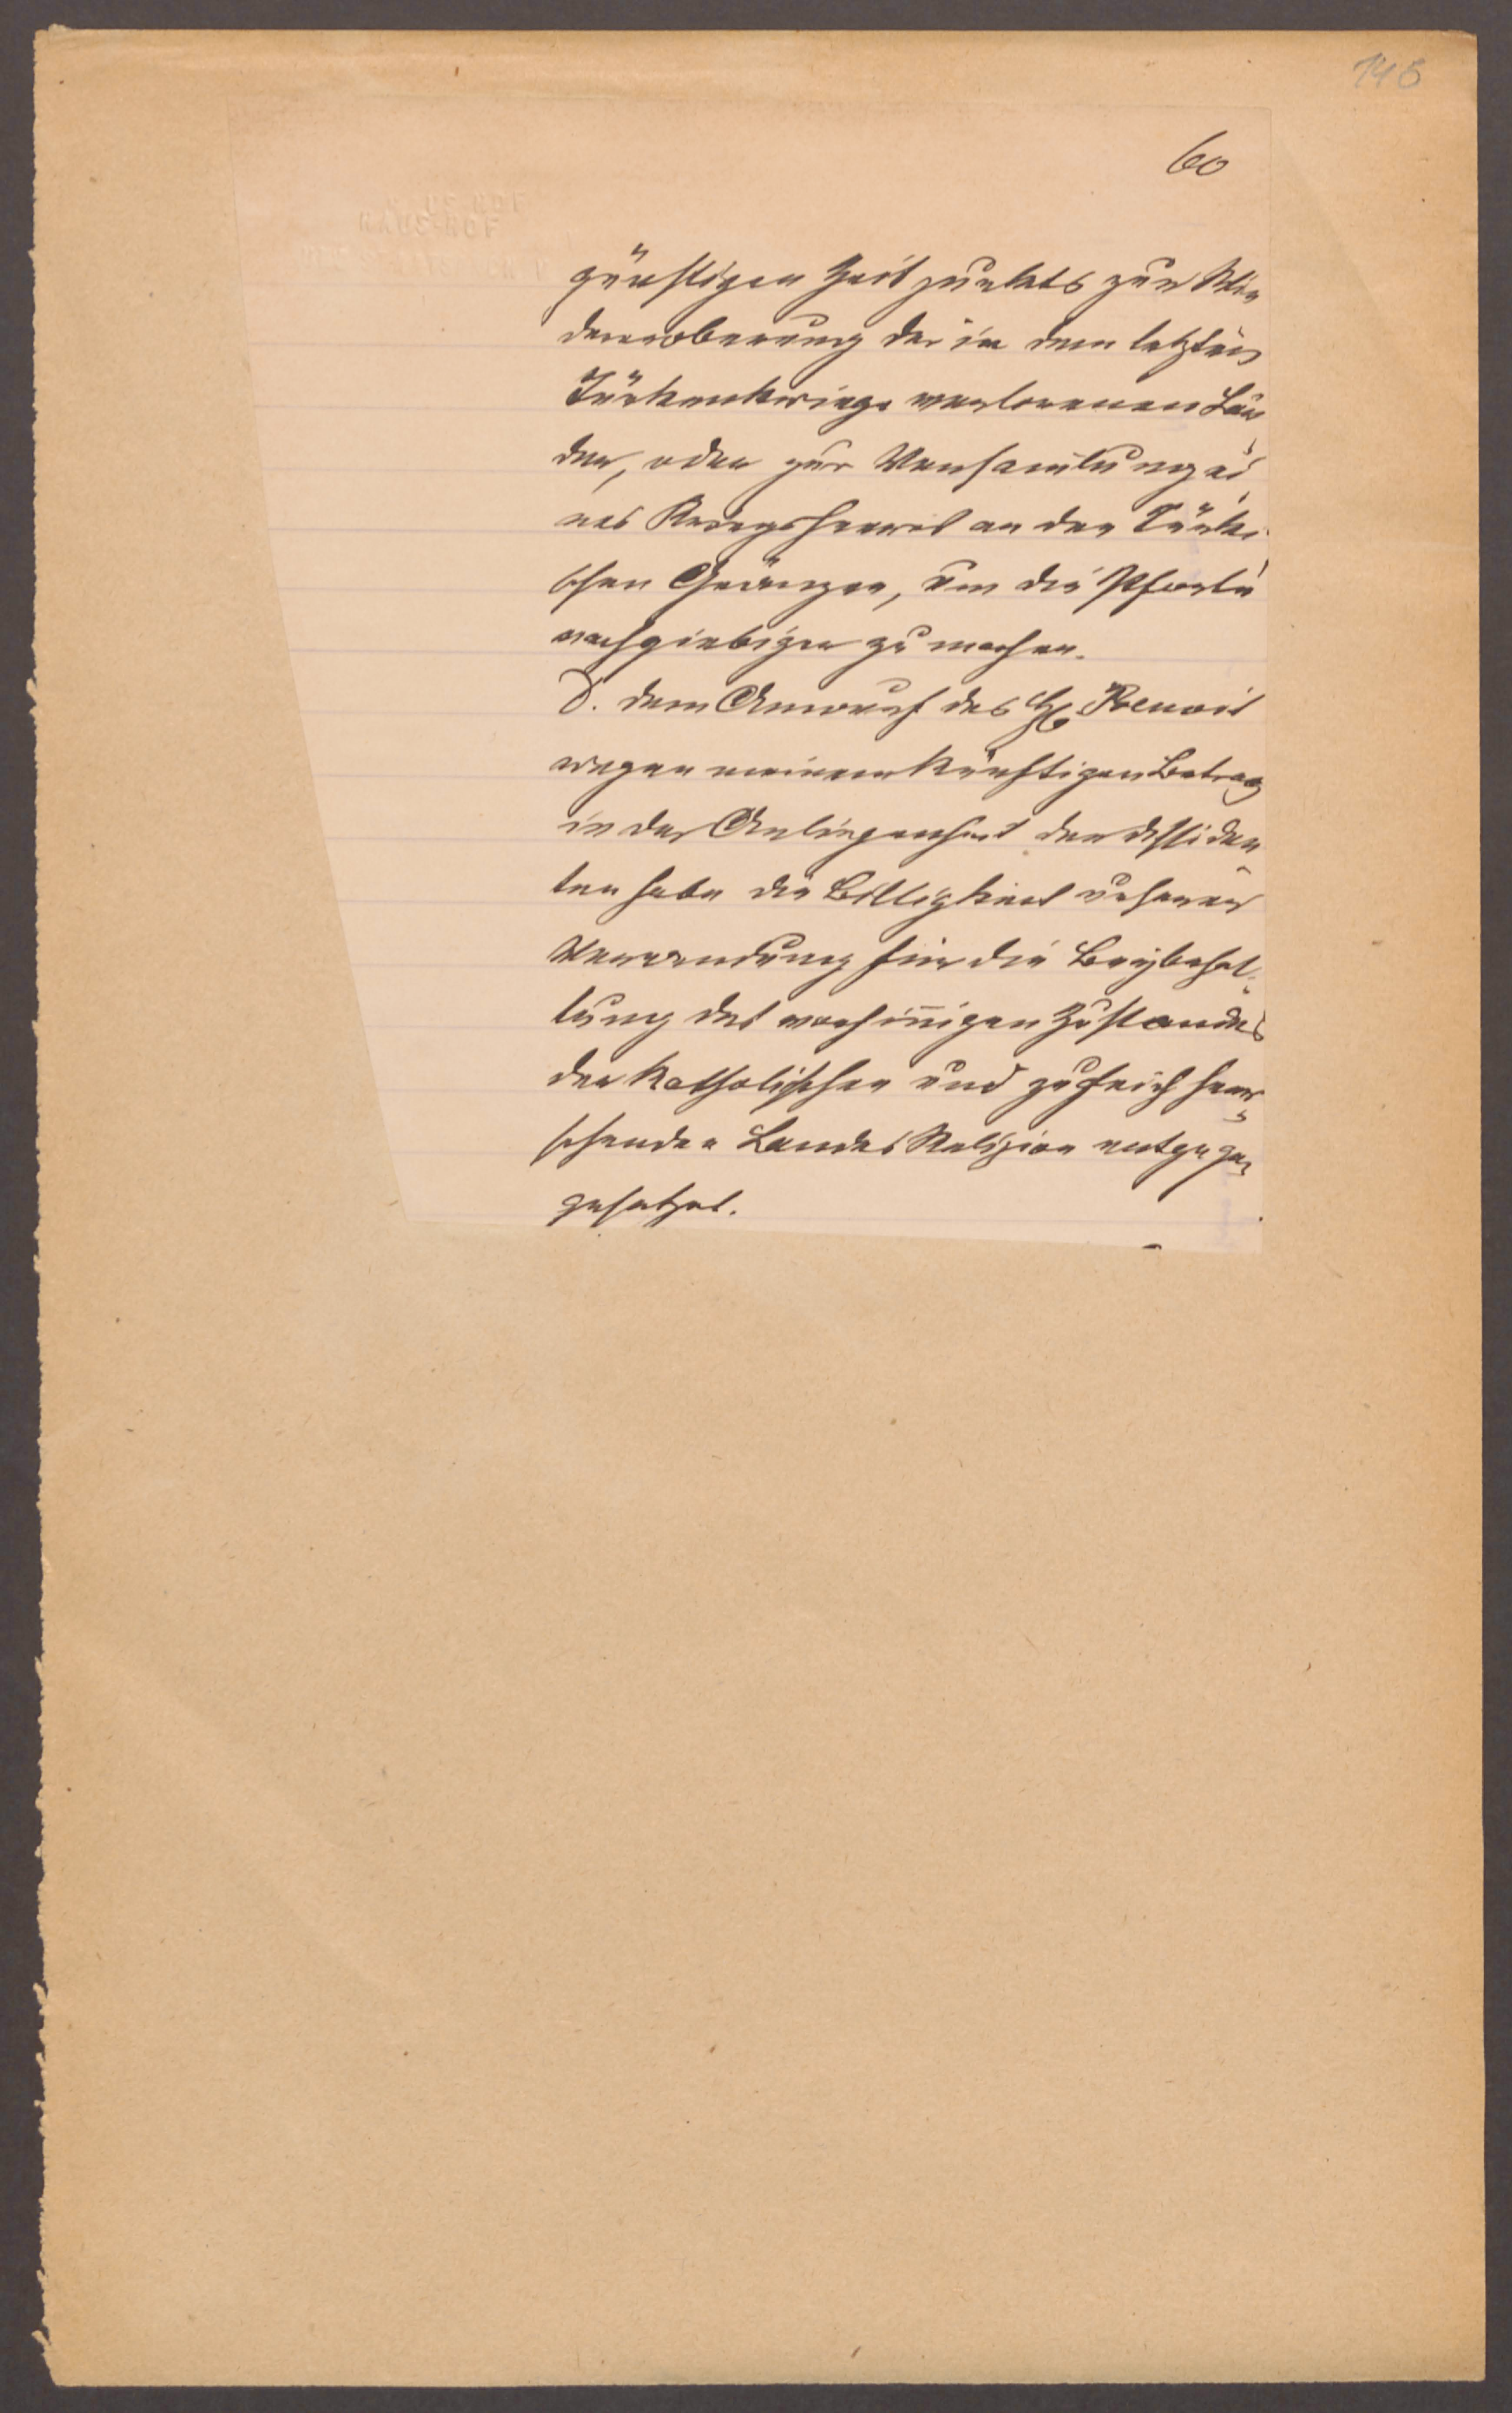 145
60
HAUS-HOF
günstigen Zeitpunkts zur Wie
dereroberung der in dem letzten
Türkenkriege verlorenen Län
der, oder zur Versamlung ei
nes Kriegsheeres an den Türki
schen Gränzen, um die Pforte
nachgiebiger zu machen.
D. dem Anwurf des H. Benoit
wegen meinem künftigen Betrag
in der Anliegenheit der Dissiden
ten habe die Billigkeit unserer
Verwendung für die Beybehal-
tung des vorhinnigen Zustandes
der Katholischen und zugleich herr
schenden Landes Religion entgegen
gesetzet.